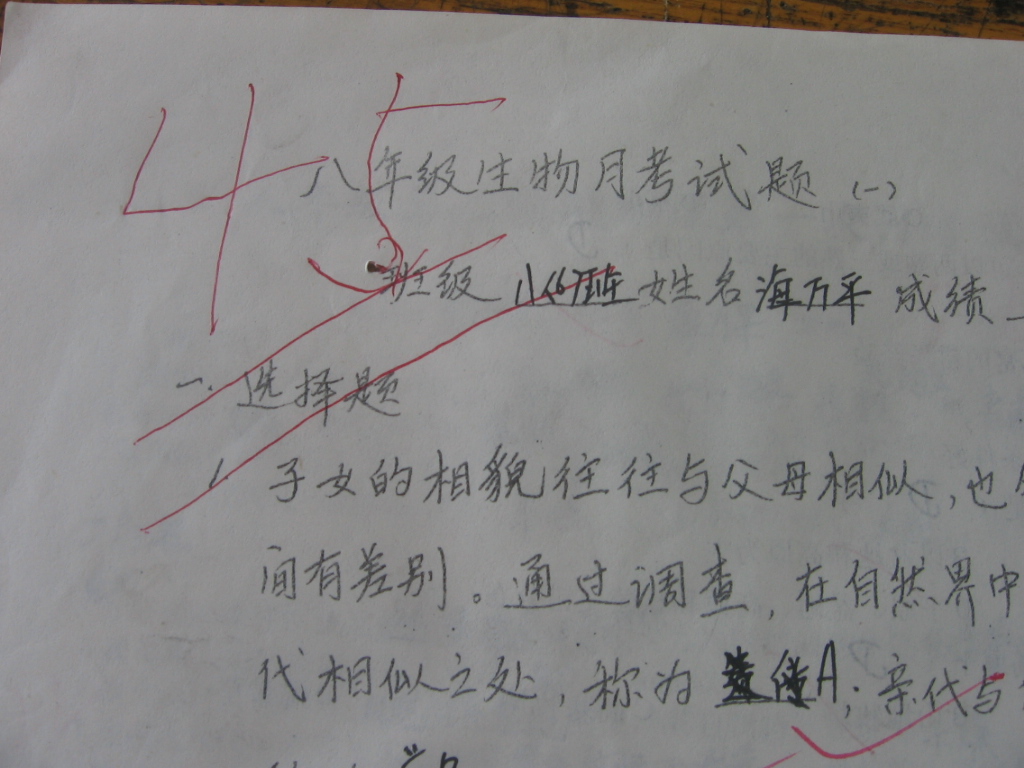 45
八年级生物月考试题 (一)
班级 八(6)班 姓名 海万平 成绩
一. 选择题
1. 子女的相貌往往与父母相似,也
间有差别。通过调查,在自然界中
代相似之处,称为 遗传A;亲代与